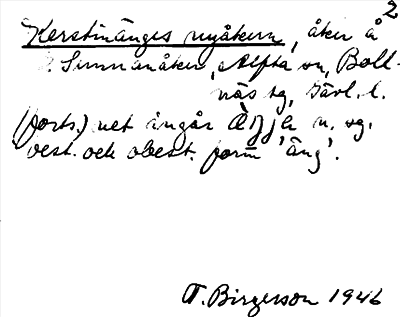 2
Kerstinänges nyåkern, åker å
Simmanåker, Alfta sn, Boll-
näs tg, Gävl. l.
(forts.) net ingår äŋjɑ n. sg.
best. och obest. form 'äng'.
T. Birgerson 1946